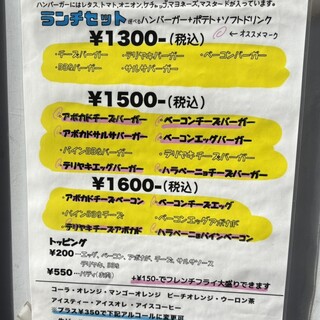 ハンバーガーにはレタス、トマト、オニオン、ケチャップ、マヨネーズ、マスタードが入っています。
ランチセット 選べるハンバーガー+ポテト+ソフトドリンク
¥1300-(税込) オススメマーク
・チーズバーガー ・テリヤキバーガー ・ベーコンバーガー
・BBQバーガー ・サルサバーガー
¥1500-(税込)
・アボカドチーズバーガー ・ベーコンチーズバーガー
・アボカドサルサバーガー ・ベーコンエッグバーガー
・パインBBQバーガー ・テリヤキチーズバーガー
・テリヤキエッグバーガー ・ハラペーニョチーズバーガー
¥1600-(税込)
・アボカドチーズベーコン ・ベーコンチーズエッグ
・パインBBQチーズ ・ベーコンエッグアボカド
・テリヤキエッグチーズ ・ハラペーニョパインベーコン
トッピング
¥200-エッグ、ベーコン、アボカド、チーズ、サルサソース
テリヤキ、BBQ
¥550-パティ(お肉) +¥150-でフレンチフライ大盛りできます
コーラ・オレンジ・マンゴーオレンジ ピーチオレンジ・ウーロン茶
アイスティー・アイスオレ・アイスコーヒー
プラス¥350で下記アルコールに変更可